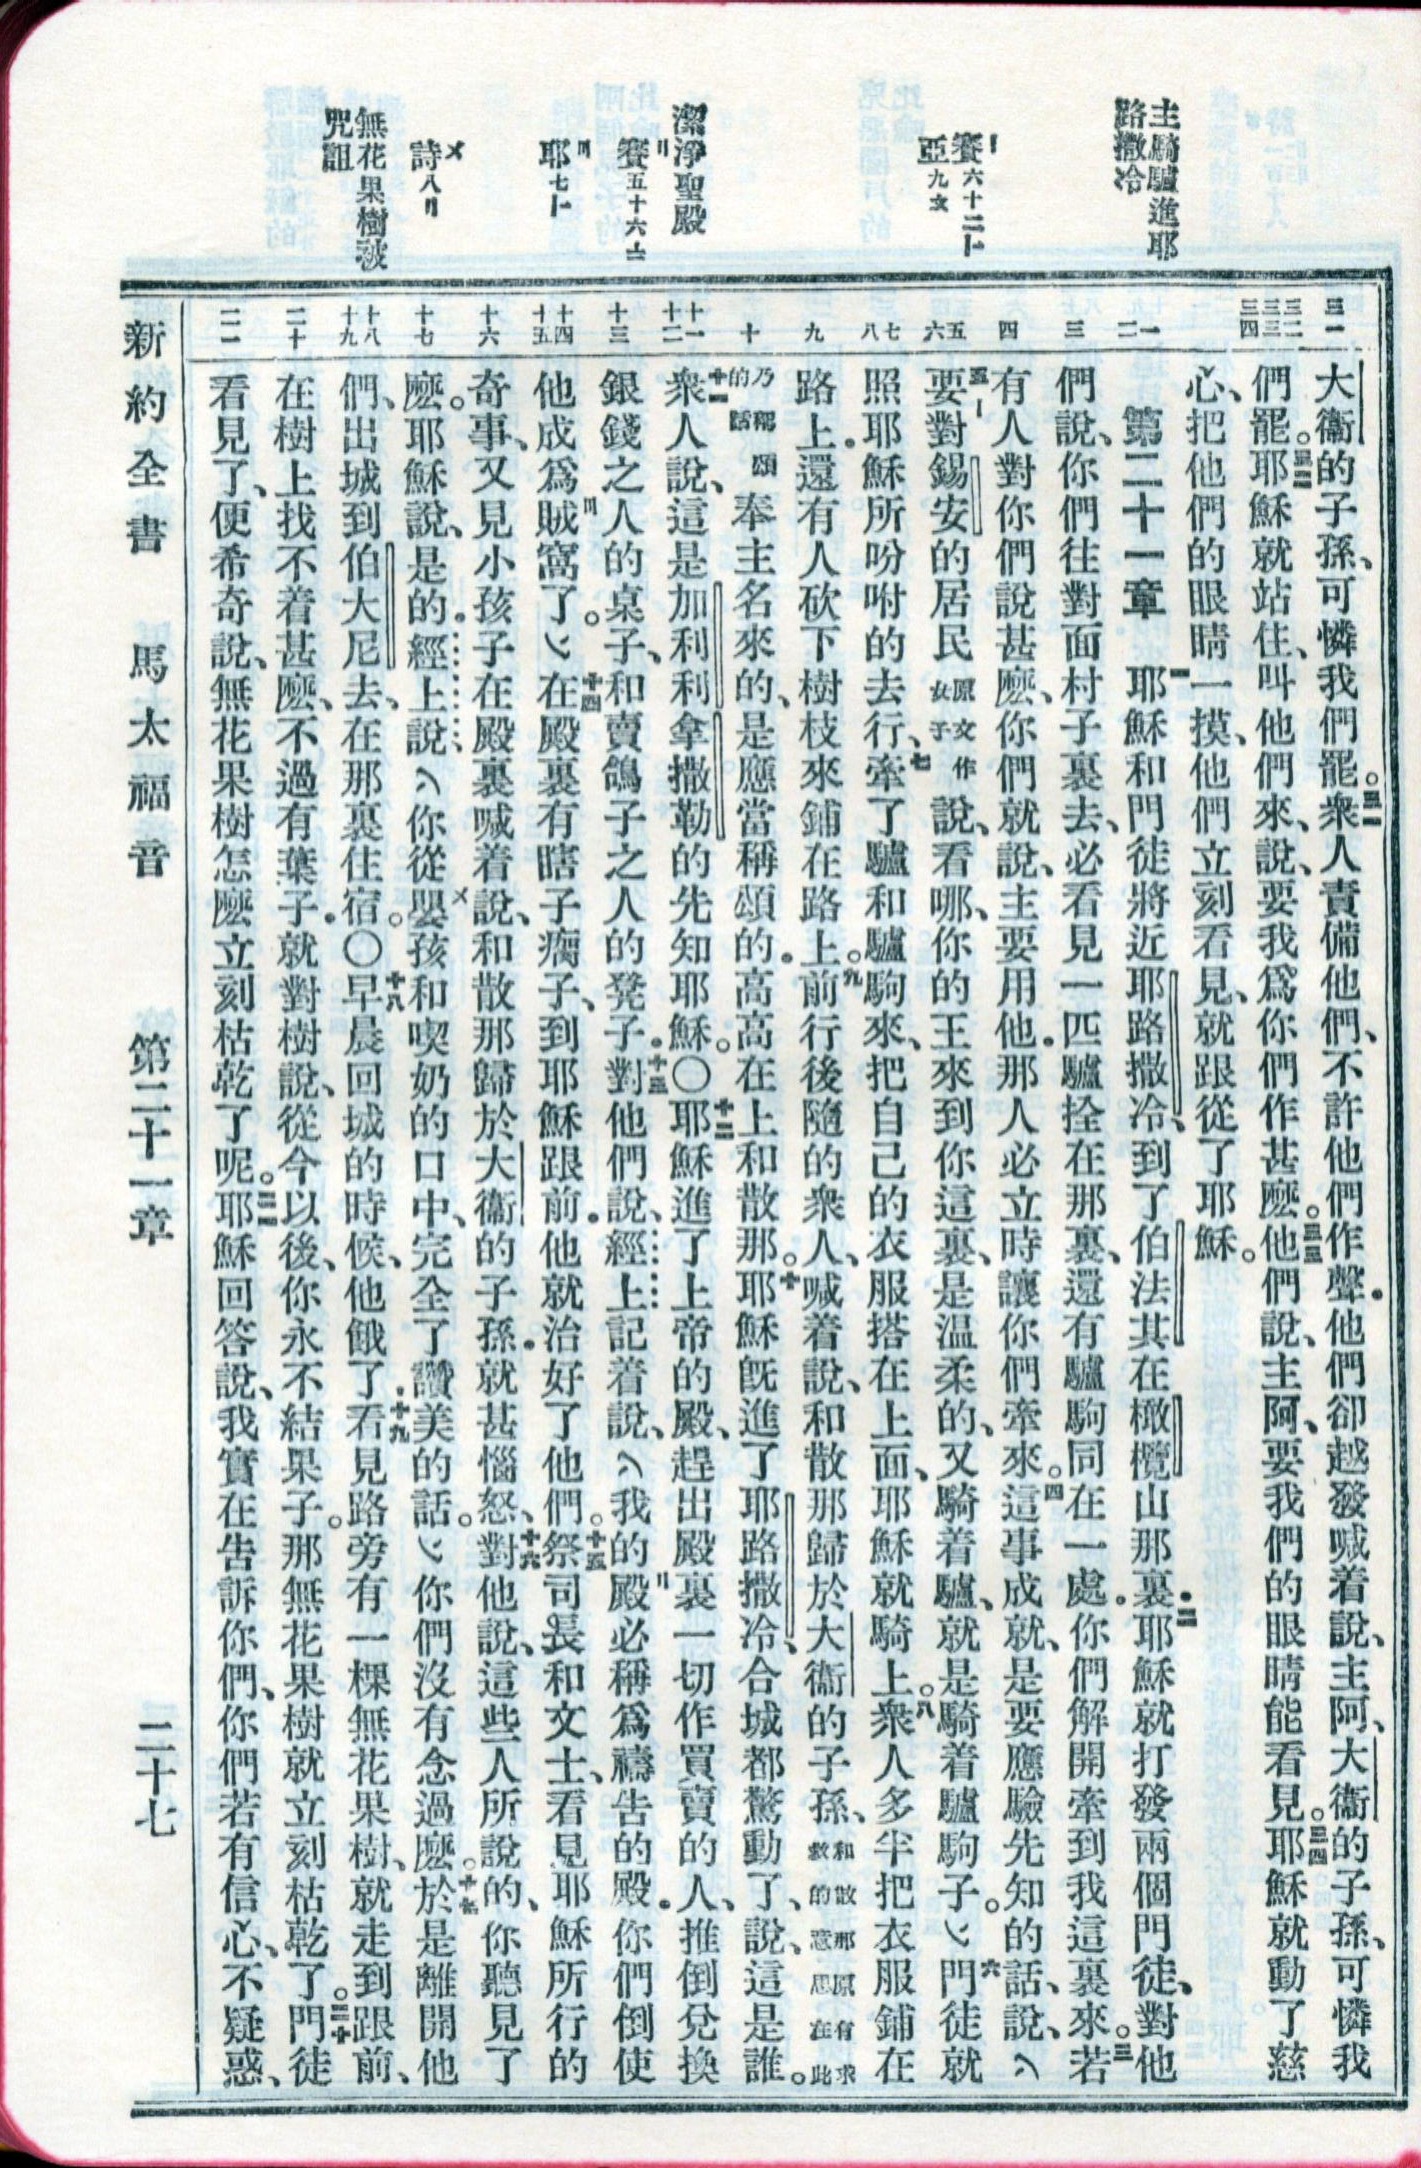 主騎驢進耶
路撒冷
賽六十二
亞九
潔淨聖殿
賽五十六
耶七
詩八
無花果樹被
咒詛
三一
三二
三三
三四
一
二
三
四
五
六
七
八
九
十
十一
十二
十三
十四
十五
十六
十七
十八
十九
二十
二一
大衞的子孫、可憐我們罷。三一衆人責備他們、不許他們作聲．他們卻越發喊着說、主阿、大衞的子孫、可憐我
們罷。三二耶穌就站住、叫他們來、說、要我爲你們作甚麽。三三他們說、主阿、要我們的眼睛能看見。三四耶穌就動了慈
心、把他們的眼睛一摸、他們立刻看見、就跟從了耶穌。
第二十一章 一耶穌和門徒將近耶路撒冷、到了伯法其在橄欖山那裏．二耶穌就打發兩個門徒、對他
們說、你們往對面村子裏去、必看見一匹驢拴在那裏、還有驢駒同在一處．你們解開牽到我這裏來。三若
有人對你們說甚麽、你們就說、主要用他．那人必立時讓你們牽來。四這事成就、是要應驗先知的話、說、
五要對錫安的居民原文作女子說、看哪、你的王來到你這裏、是温柔的、又騎着驢、就是騎着驢駒子。六門徒就
照耶穌所吩咐的去行、七牽了驢和驢駒來、把自己的衣服搭在上面、耶穌就騎上。八衆人多半把衣服鋪在
路上．還有人砍下樹枝來鋪在路上。九前行後隨的衆人、喊着說、和散那歸於大衞的子孫、和散那原有求救的意思在此
乃稱頌的話奉主名來的、是應當稱頌的．高高在上和散那。十耶穌旣進了耶路撒冷、合城都驚動了、說、這是誰。
十一衆人說、這是加利利拿撒勒的先知耶穌。〇十二耶穌進了上帝的殿、趕出殿裏一切作買賣的人、推倒兌換
銀錢之人的桌子、和賣鴿子之人的凳子．十三對他們說、經上記着說、我的殿必稱爲禱告的殿．你們倒使
他成爲賊窩了。十四在殿裏有瞎子瘸子、到耶穌跟前．他就治好了他們。十五祭司長和文士、看見耶穌所行的
奇事、又見小孩子在殿裏喊着說、和散那歸於大衞的子孫．就甚惱怒、十六對他說、這些人所說的、你聽見了
麽。耶穌說、是的．經上說、你從嬰孩和喫奶的口中、完全了讚美的話。你們沒有念過麽。十七於是離開他
們、出城到伯大尼去、在那裏住宿。〇十八早晨回城的時候、他餓了．十九看見路旁有一棵無花果樹、就走到跟前、
在樹上找不着甚麽、不過有葉子．就對樹說、從今以後、你永不結果子。那無花果樹就立刻枯乾了。二十門徒
看見了、便希奇說、無花果樹怎麽立刻枯乾了呢。二一耶穌回答說、我實在告訴你們、你們若有信心、不疑惑、
新約全書 馬太福音 第二十一章 二十七